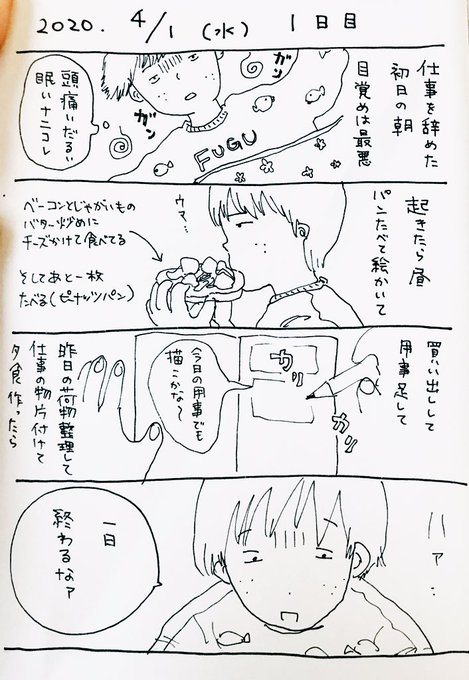 2020. 4/1 (水) 1日目
仕事を辞めた
初日の朝
目覚めは最悪
ガン
ガン
FUGU
頭痛いだるい
眠いナニコレ
起きたら昼
パンたべて絵かいて
ウマ…
ベーコンとじゃがいもの
バター炒めに
チーズかけて食べてる
そしてあと一枚
たべる(ピーナッツパン)
買い出しして
用事足して
カリ
カリ
今日の用事でも
描こかな〜
昨日の荷物整理して
仕事の物片付けて
夕食作ったら
ハァ…
一日
終わるなァ